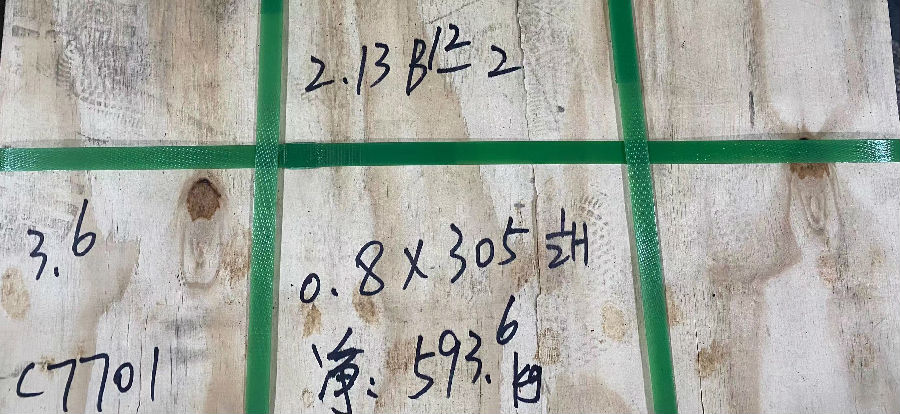 2.13 B12-2
3.6
0.8×305 1/2H
C7701
净:593.6kg